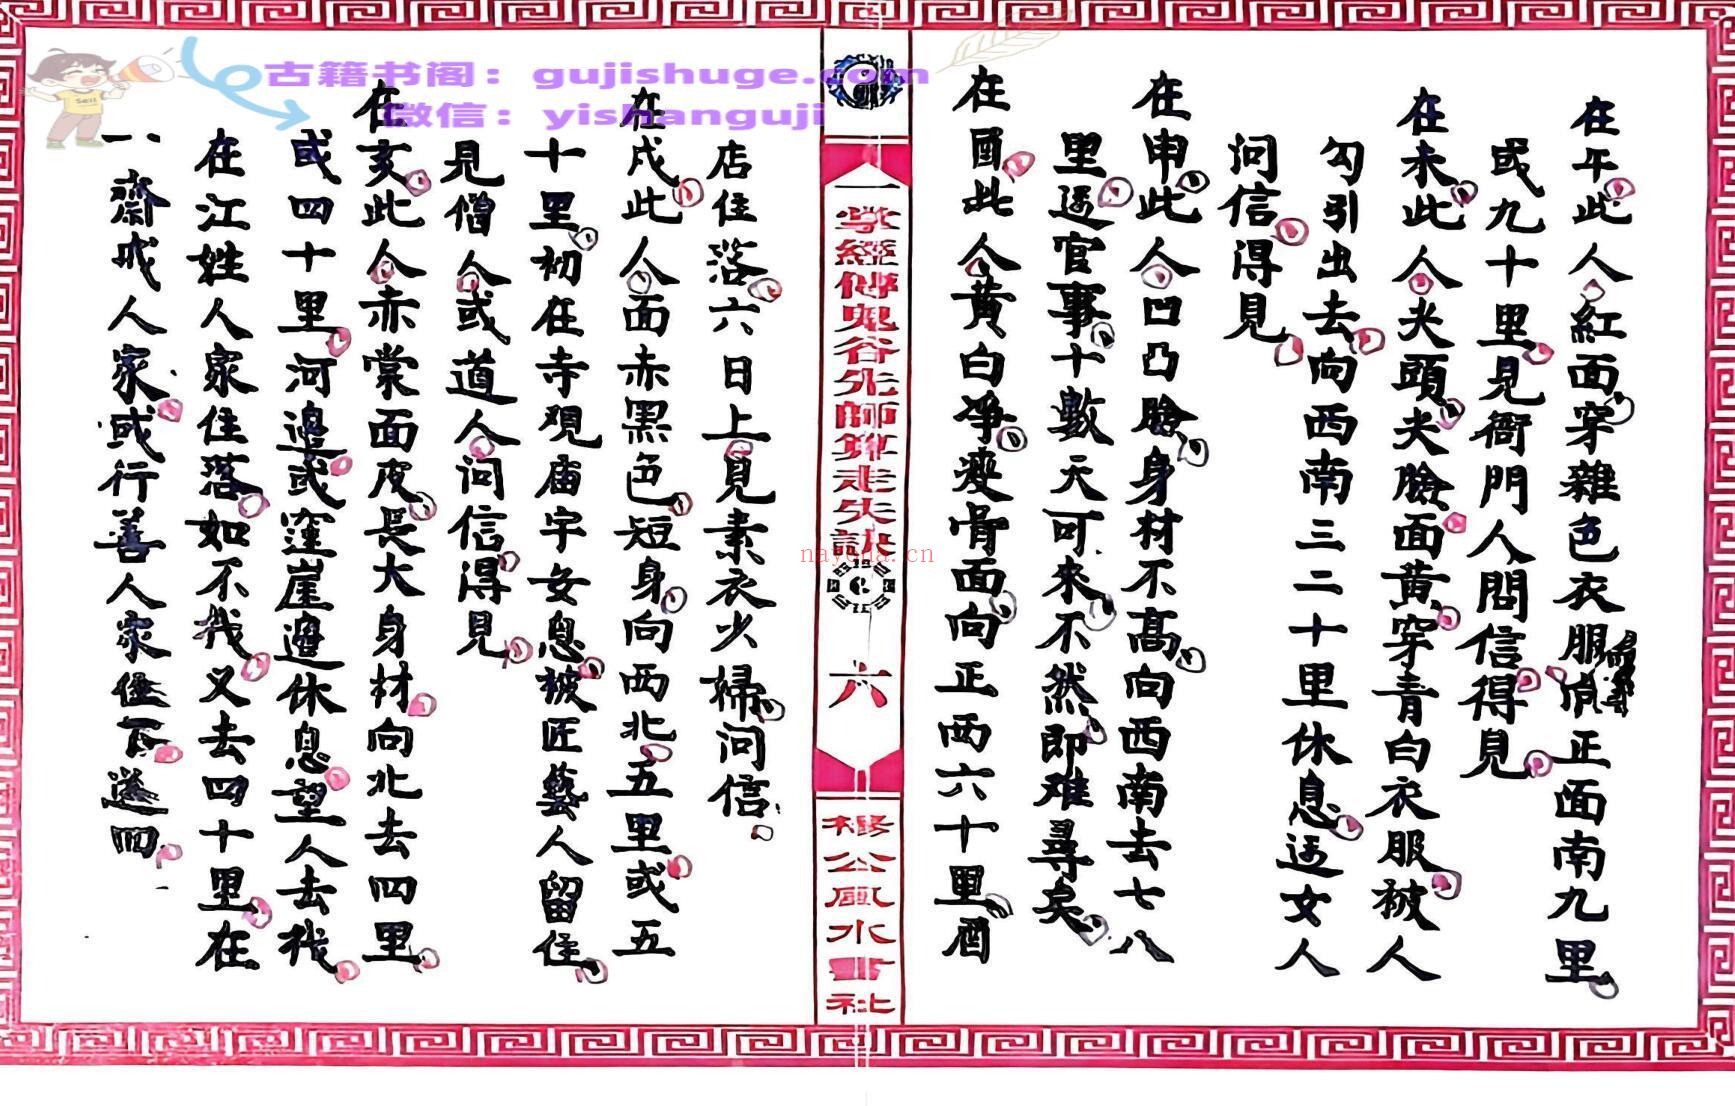 古籍书阁：gujishuge.com
微信：yishanguji
在午此人紅面穿雜色衣服正面南九里
或九十里見衙門人問信得見
在未此人夫頭夫臉面黄穿青白衣服被人
勾引出去向西南三二十里休息逢女人
问信得見
在申此人凹凸臉身材不高向西南去七八
里逢官事十數天可來不然即难尋矣
在酉此人黄白净瘦骨面向正西六十里酒
一掌經傳鬼谷先師算走失訣
六
楊公風水書社
店住落六日上見素衣少婦问信
在戍此人面赤黑色短身向西北五里或五
十里初在寺观庙宇安息被匠藝人留住
見僧人或道人问信得見
在亥此人赤棠面皮長大身材向北去四里
或四十里河邊或窪崖邊休息望人去找
在江姓人家住落如不找又去四十里在
一齋戒人家或行善人家住下送回
nayona.cn